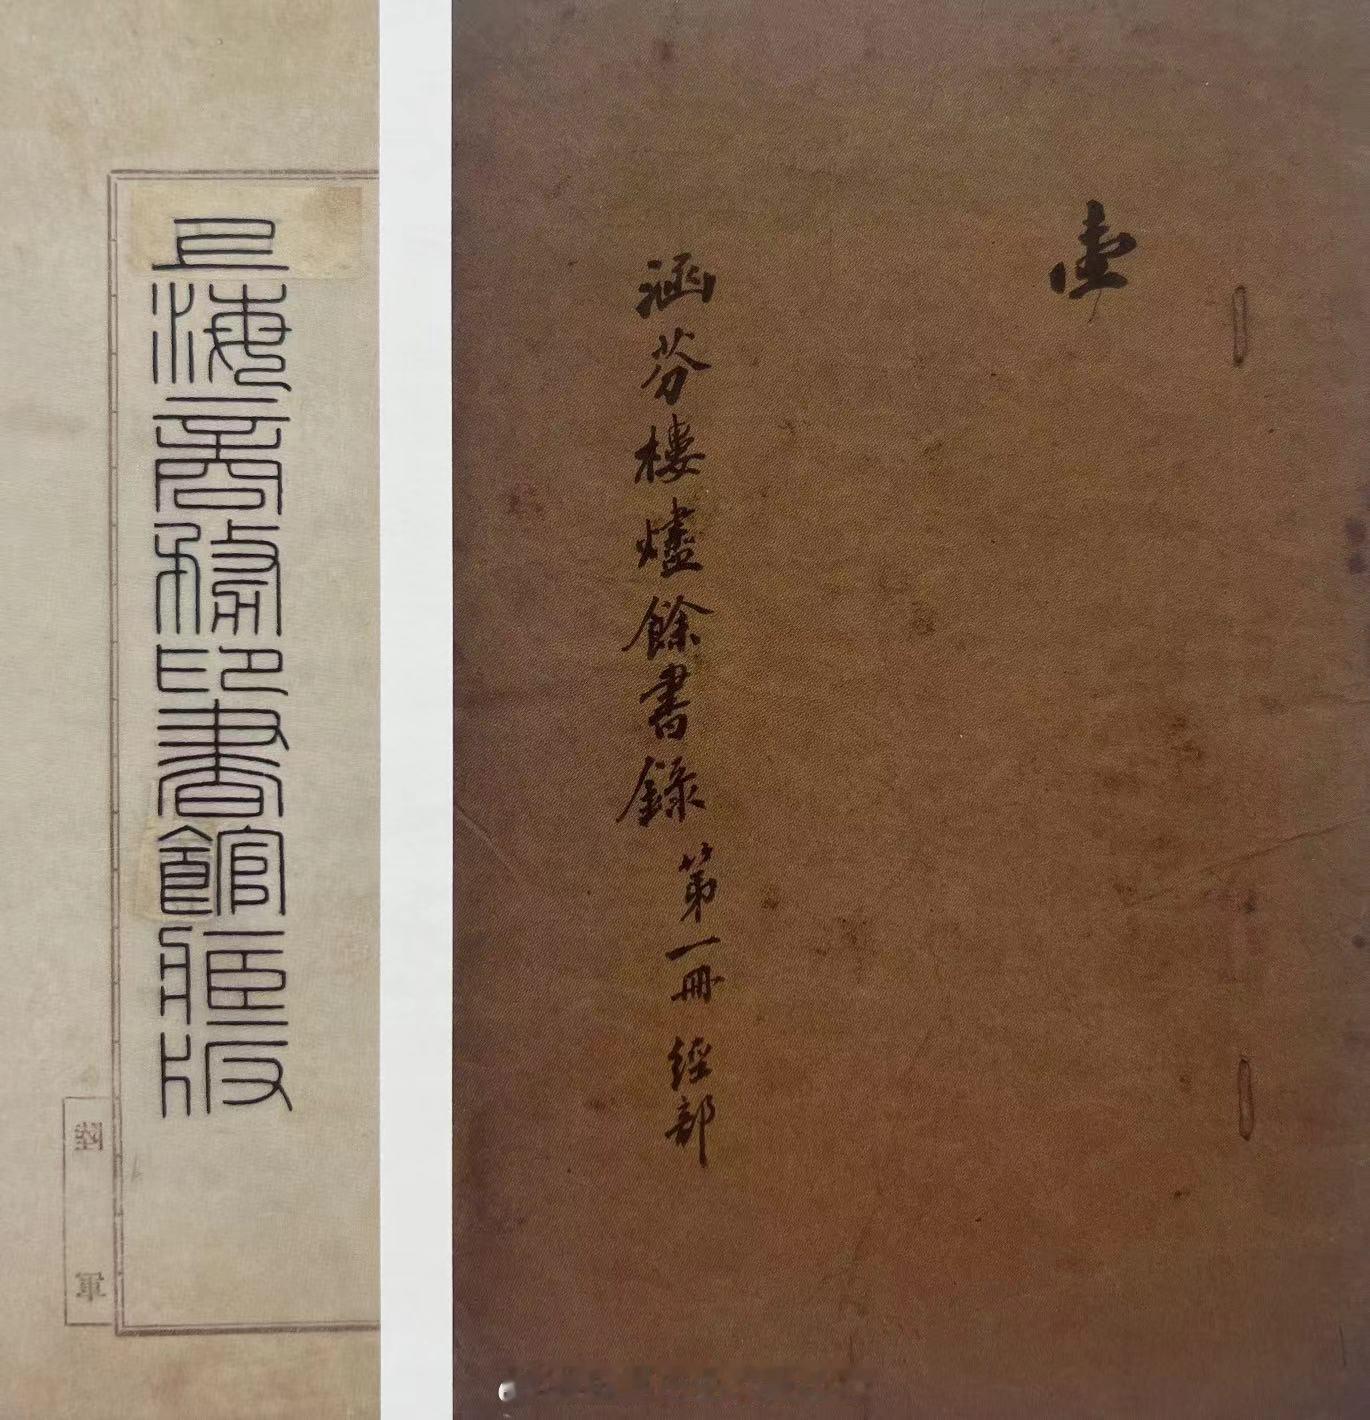 壹
涵芬樓燼餘書錄 第一冊 經部
上海商務印書館臧版